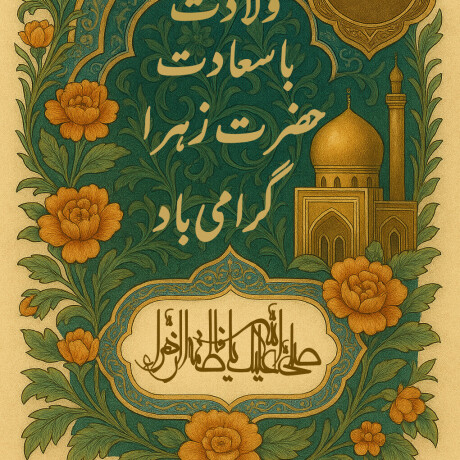 ولادت
با سعادت
حضرت زهرا
گرامی باد
صلی الله علیک یا فاطمة الزهراء